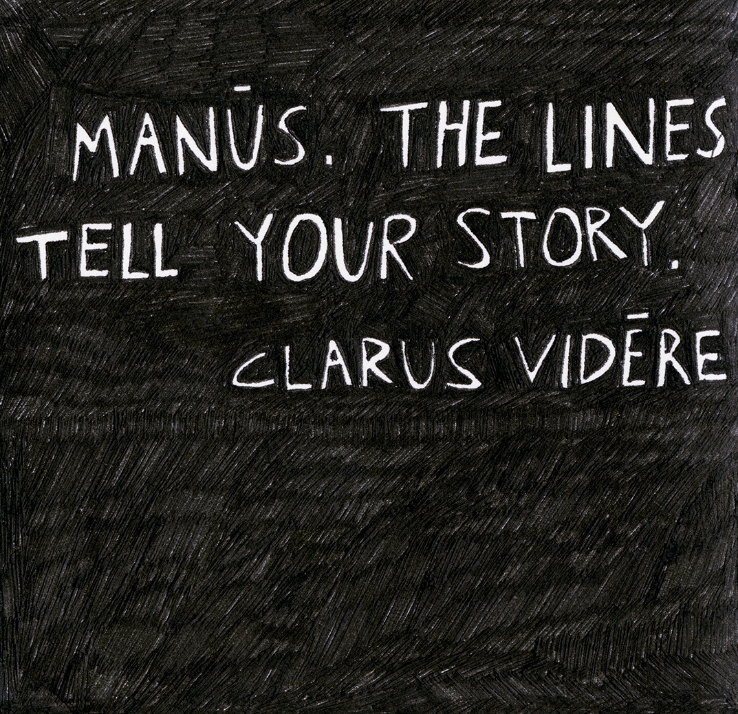 MANŪS. THE LINES
TELL YOUR STORY.
CLARUS VIDĒRE